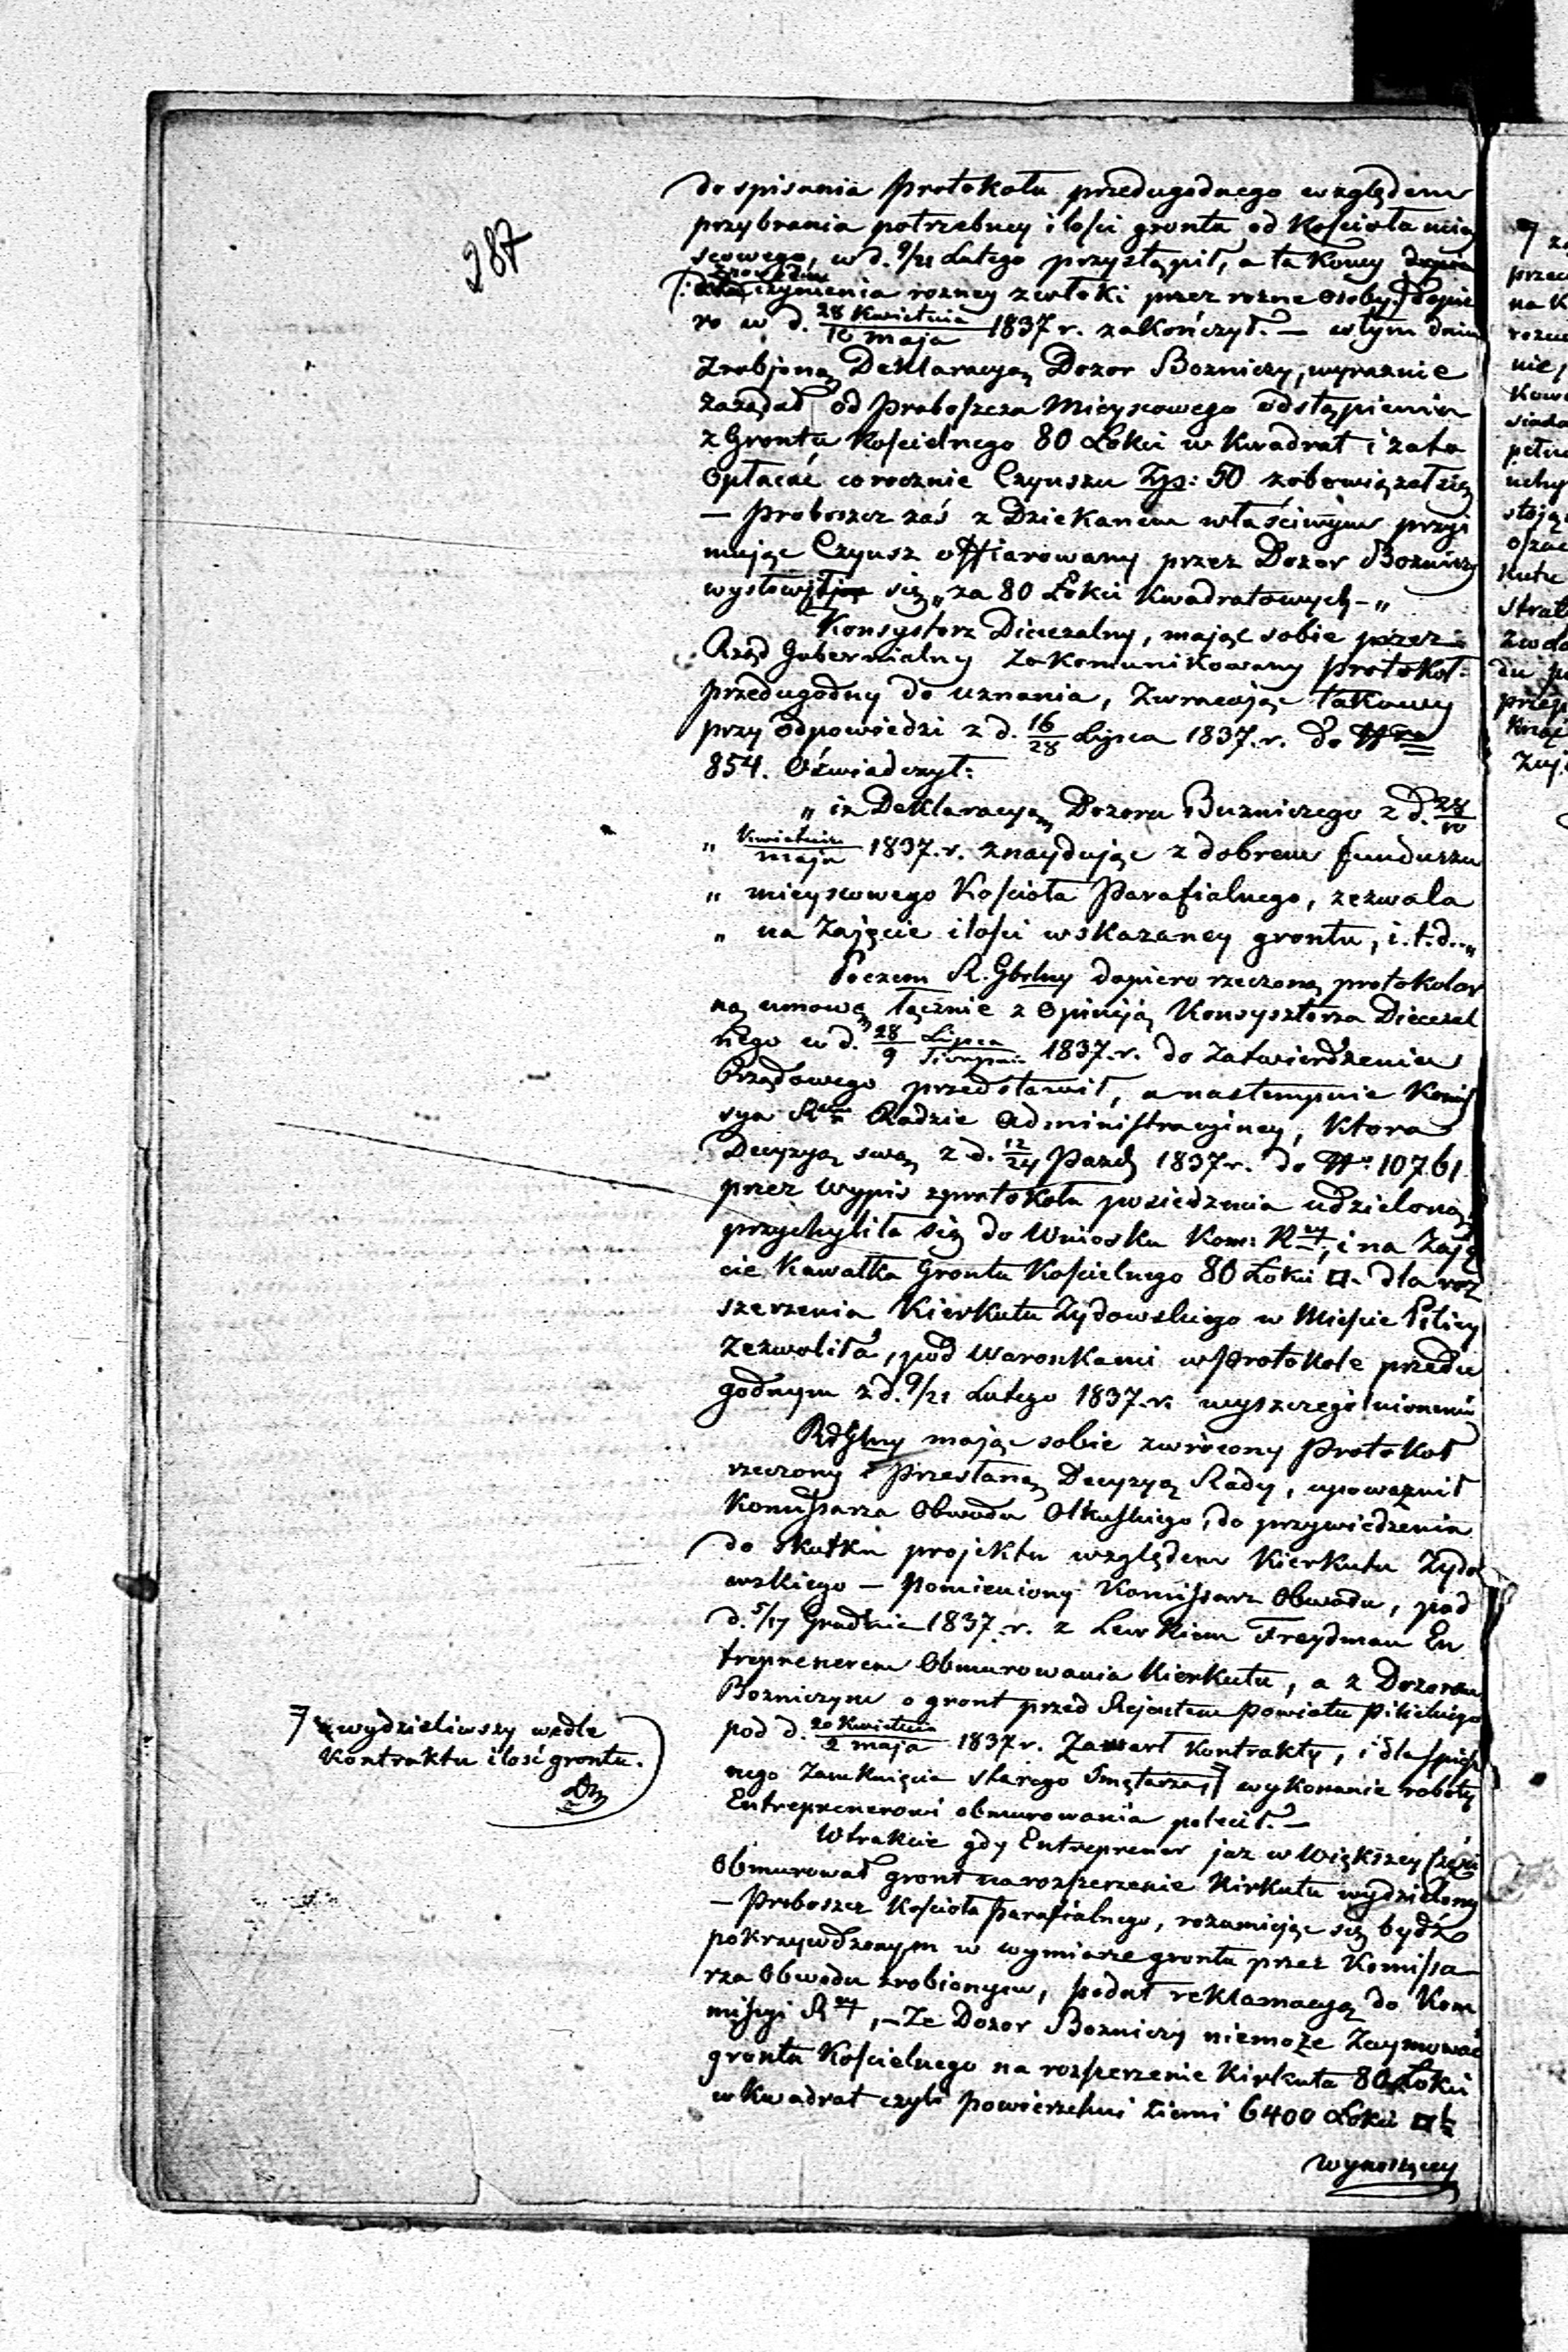 287
do spisania protokołu przedugodnego względem
przybrania potrzebney ilości grontu od Kościoła miey
scowego, w d. 9/21 Lutego przystąpił, a takowy
czynienia rozney zwłoki przez rozne osoby dopie
ro w d. 28 Kwietnia/10 maja 1837 r. zakończył. – w tym dniu
Zrobioną Deklaracyą Dozor Bozniczy, wyraznie
zażądał od Proboszcza Mieyscowego odstąpienia
z Grontu Kościelnego 80 Łokci w Kwadrat i zato
opłacać corocznie Czynszu Złp: 50 zobowiązał się
– Proboszcz zaś z Dziekanem właściwym przyi
mując Czynsz offiarowany przez Dozor Bozniczy
wysłowił się „za 80 Łokci Kwadratowych –„
Konsystorz Dieczalny, mając sobie przez
Rząd Gubernialny Zakomunikowany protokoł
przedugodny do uznania, Zwracając takowy
przy odpowiedzi z d. 16/28 Lipca 1837. r. do Nra
854. Oświadczył:
„ iz Deklaracyą Dozoru Buzniczego z d. 28/10
„ Kwietnia/maja 1837. r. znaydując z dobrem funduszu
„ mieyscowego Kościoła Parafialnego, zezwala
„ na Zajęcie ilości wskazaney grontu, i. t. d.„
Poczem R. Gbelny dopiero rzeczoną protokolar
ną umowę łącznie z Opiniją Konsystorza Dieczal
nego w d. 28/9 Lipca/Sierpnia 1837. r. do Zatwierdzenia
Rządowego przedstawił, a nastempnie Komis
sya Radzie Administracyiney, Ktora
Decyzyą swą z d. 12/24 Pazdz 1837 r. do No 10761
przez wypis zprotokołu posiedzenia udzieloną,
przychyliła się do Wniosku Kom: Rz, i na Zaję
cie Kawałka Grontu Kościelnego 80 Łokci □. dla roz
szerzenia Kierkutu Zydowskiego w Mieście Pilicy
Zezwoliła, pod Warunkami w Protokole przedu
godnym z d. 9/21 Lutego 1837. r. wyszczegolnionemi
RdGlny mając sobie zwrócony Protokoł
rzeczony i Przesłaną Decyzyą Rady, upowaznił
Kommissarza Obwodu Olkuskiego, do przywiedzenia
do skutku projektu względem Kierkutu Zydo
wskiego – pomieniony Komissarz Obwodu, pod
d. 5/17 Grudnia 1837. r. z Lewkiem Freydman En
treprenerem Obmurowania Kierkutu, a z Dozorem
Bozniczym o gront przed Rejentem Powiatu Pilickiego
pod d. 20 Kwietnia/2 maja 1837 r. Zawarł Kontrakty, i dla spiesz
nego Zamknięcia starego Smętarza, wykonanie roboty
Entreprenerowi obmurowania polecił. –
wydzieliwszy wedle
Kontraktu ilość grontu.
W trakcie gdy Entreprener juz w Większey części
Obmurował gront na rozszerzenie Kirkutu wydzielony
– Proboszcz Kościoła Parafialnego, rozumiejąc się bydz
pokrzywdzonym w wymiarze gruntu przez Komissa
rza Obwodu zrobionym, podał reklamacyą do Kom
missyi Rz, – Ze Dozor Bozniczy niemoże Zaymować
grontu Kościelnego na rozszerzenie Kirkuta 80 Łokci
w Kwadrat czyli powierzchni Ziemi 6400 Łokci □
wynoszącey